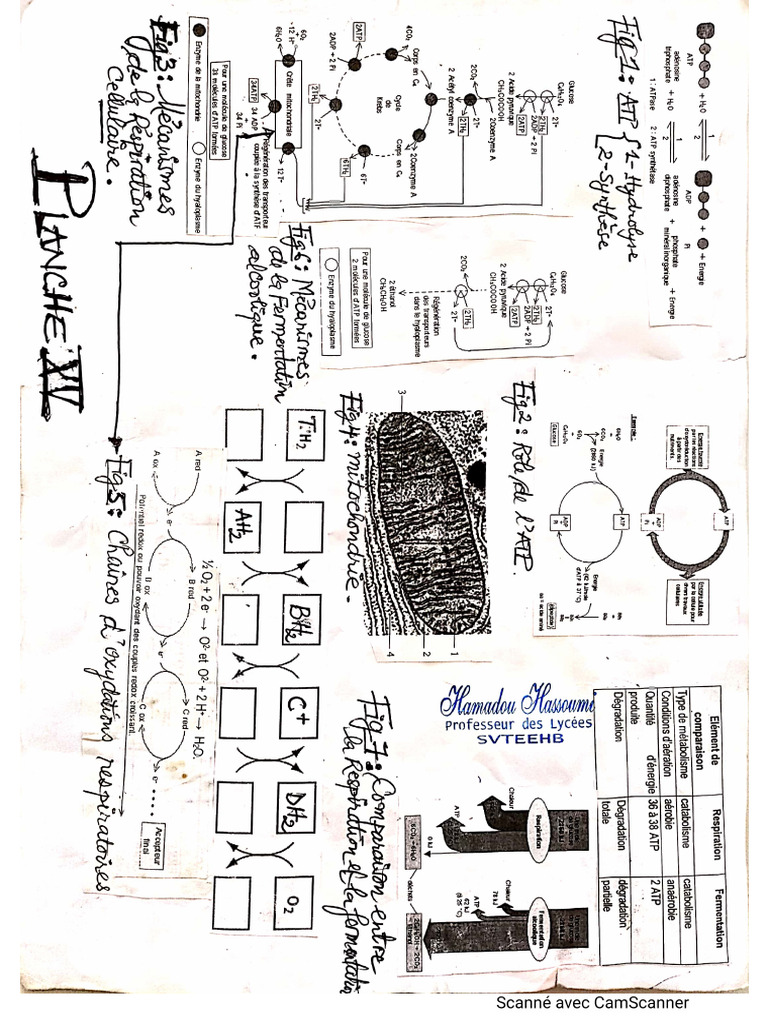 ATP
adénosine triphosphate + H₂O
1
2
ADP
adénosine diphosphate
Pi
+ phosphate minéral inorganique
+ Energie
+ Energie
1 : ATPase 2 : ATP synthétase
Fig 1 : ATP { 1- Hydrolyse
2- Synthèse
Glucose
C₆H₁₂O₆
2ADP + 2 Pi
2ATP
2TH₂
2T
2 Acide pyruvique
CH₃COCOOH
2CO₂
2coenzyme A
2TH₂
2T
2 Acétyl coenzyme A
2Coenzyme A
Corps en C₄
Corps en C₆
4CO₂
Cycle
de
Krebs
2ADP + 2 Pi
2ATP
2TH₂
2T
6TH₂
6T
6O₂
12 H⁺
6H₂O
Crête mitochondriale
34ATP
34 ADP
34 Pi
12T
Régénération des transporteur
couplée à la synthèse d'ATP
Pour une molécule de glucose
38 molécules d'ATP formées
Enzyme de la mitochondrie
Enzyme du hyaloplasme
Fig 3 : Mécanismes
de la Respiration
Cellulaire.
PLANCHE XV
Glucose
C₆H₁₂O₆
2ADP + 2 Pi
2ATP
2TH₂
2T
2 Acide pyruvique
CH₃COCOOH
2CO₂
2TH₂
2T
Régénération
des transporteurs
dans le hyaloplasme
2 éthanol
CH₃CH₂OH
Pour une molécule de glucose
2 molécules d'ATP formées
Enzyme du hyaloplasme
Fig 6 : Mécanismes
de la Fermentation
alcoolique.
ATP
ADP
+
Pi
cellulaires
Glucose
C₆H₁₂O₆
6O₂
6CO₂
6H₂O
Energie
ATP
ADP
+
Pi
Energie
Fig 2 : Rôle de l'ATP.
1
2
3
4
Fig 4 : mitochondrie.
T'H₂
AH₂
BH₂
C⁺
DH₂
O₂
½ O₂ + 2 e⁻ → O²⁻ et O²⁻ + 2 H⁺ → H₂O.
A red
A ox
e⁻
B red
B ox
e⁻
C red
C ox
e⁻
Accepteur
final
Potentiel redox ou pouvoir oxydant des couples redox croissant.
Fig 5 : Chaînes d'oxydations respiratoires
Elément de comparaison Respiration Fermentation
Type de métabolisme catabolisme catabolisme
Conditions d'aération aérobie anaérobie
Quantité d'énergie produite 36 à 38 ATP 2 ATP
Dégradation Dégradation totale dégradation partielle
Hamadou Hassoumi
Professeur des Lycées
SVTEEHB
Respiration
Chaleur
ATP
6CO₂ + 6H₂O
0 kJ
déchets
Fermentation
alcoolique
Chaleur
ATP
Fig 7 : Comparaison entre
la Respiration et la fermentation
Scanné avec CamScanner